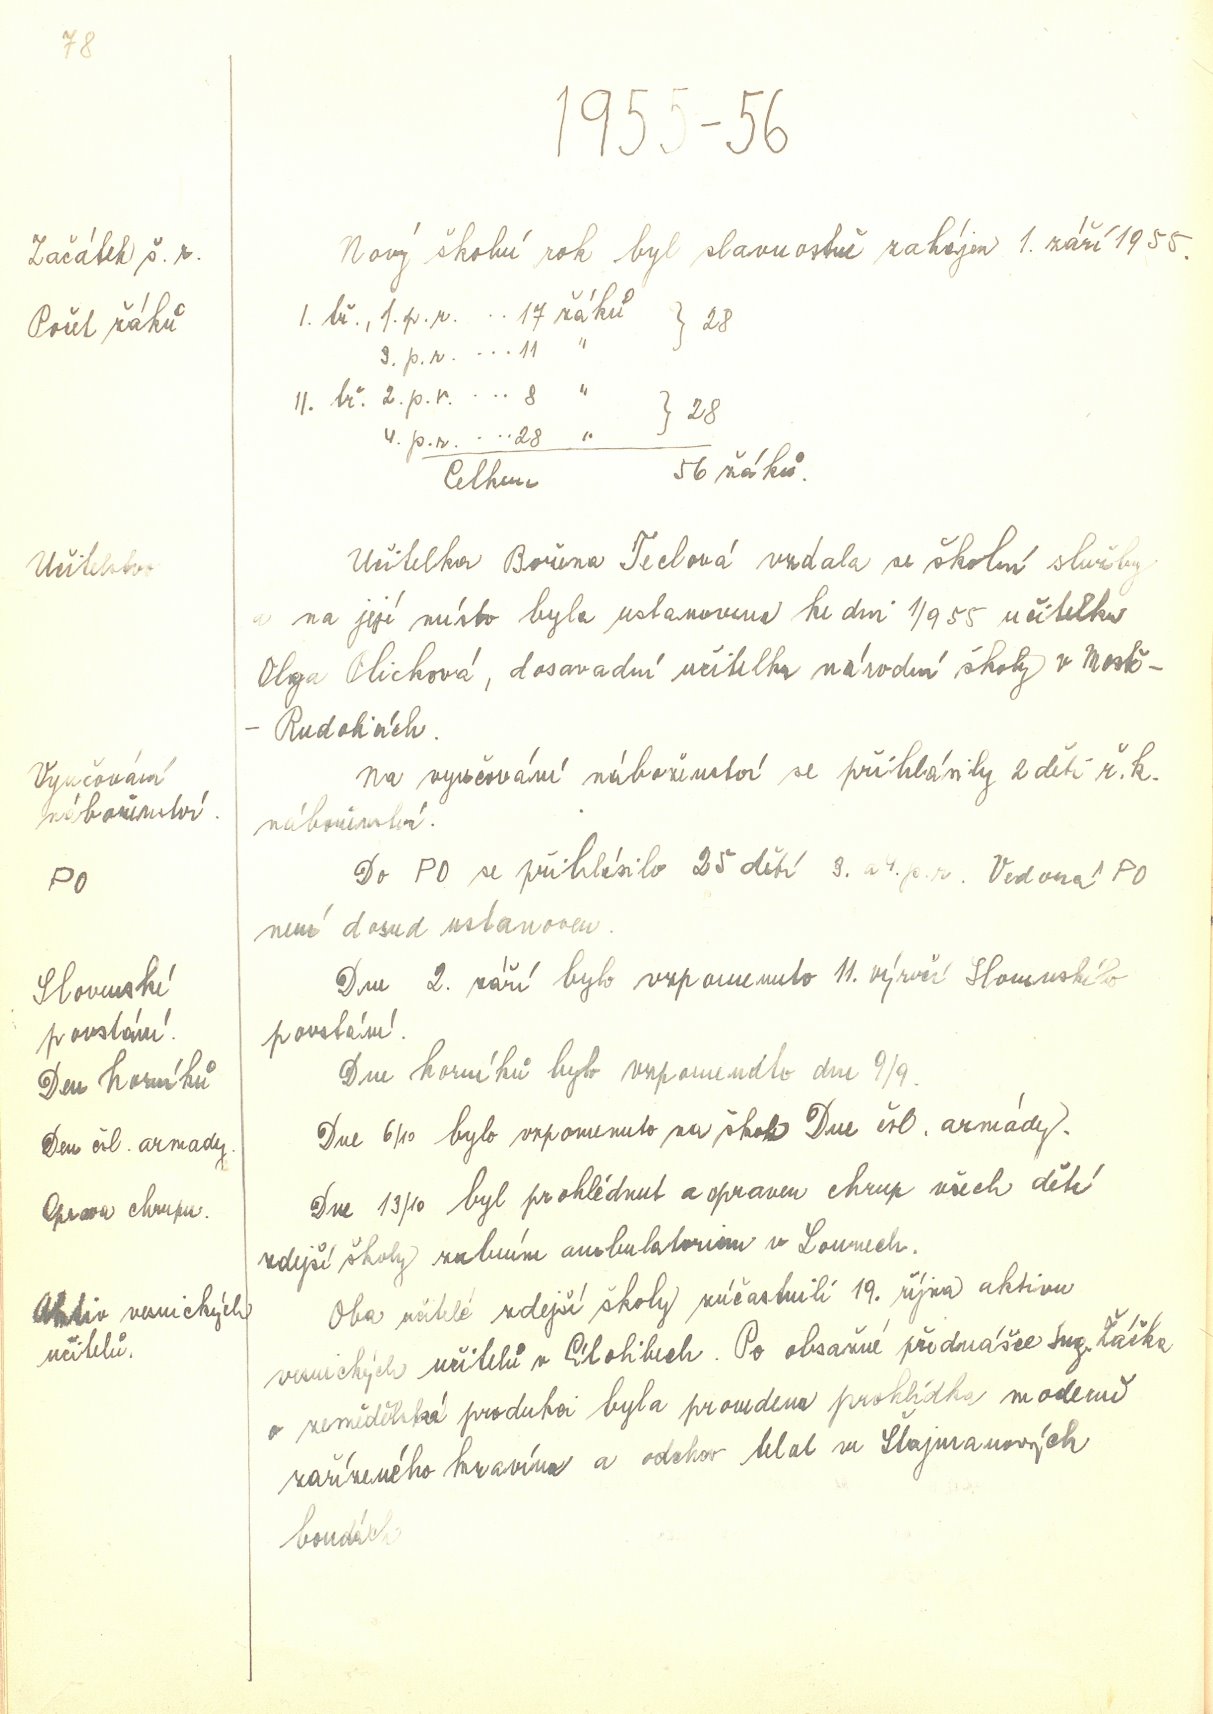 78
1955-56
Začátek š. r.
Nový školní rok byl slavnostně zahájen 1. září 1955.
Počet žáků
1. tř., 1. p. r. .. 17 žáků } 28
3. p. r. ... 11 "
11. tř. 2. p. r. ... 8 " } 28
4. p. r. ... 28 "
Celkem 56 žáků.
Učitelstvo
Učitelka Božena Teclová vzdala se školní služby
a na její místo byla ustanovena ke dni 1/9 55 učitelka
Olga Ulichová, dosavadní učitelka národní školy v Mostě-
- Rudolicích.
Vyučování
náboženství.
Na vyučování náboženství se přihlásily 2 děti ř. k.
náboženství.
PO
Do PO se přihlásilo 25 dětí 3. a 4. p. r. Vedoucí PO
není dosud ustanoven.
Slovenské
povstání.
Dne 2. září bylo vzpomenuto 11. výročí Slovenského
povstání.
Den horníků
Dne horníků bylo vzpomenuto dne 9/9.
Den čsl. armady.
Dne 6/10 bylo vzpomenuto na škole Dne čsl. armády.
Oprava chrupu.
Dne 13/10 byl prohlédnut a opraven chrup všech dětí
zdejší školy zubním ambulatoriem v Lounech.
Aktiv vesnických
učitelů.
Oba učitelé zdejší školy zúčastnili 19. října aktivu
vesnických učitelů v Cítolibech. Po obsažné přednášce Ing. Žáčka
o zemědělské produkci byla provedena prohlídka moderně
zařízeného kravína a odchov telat ve Štajmanových
boudách